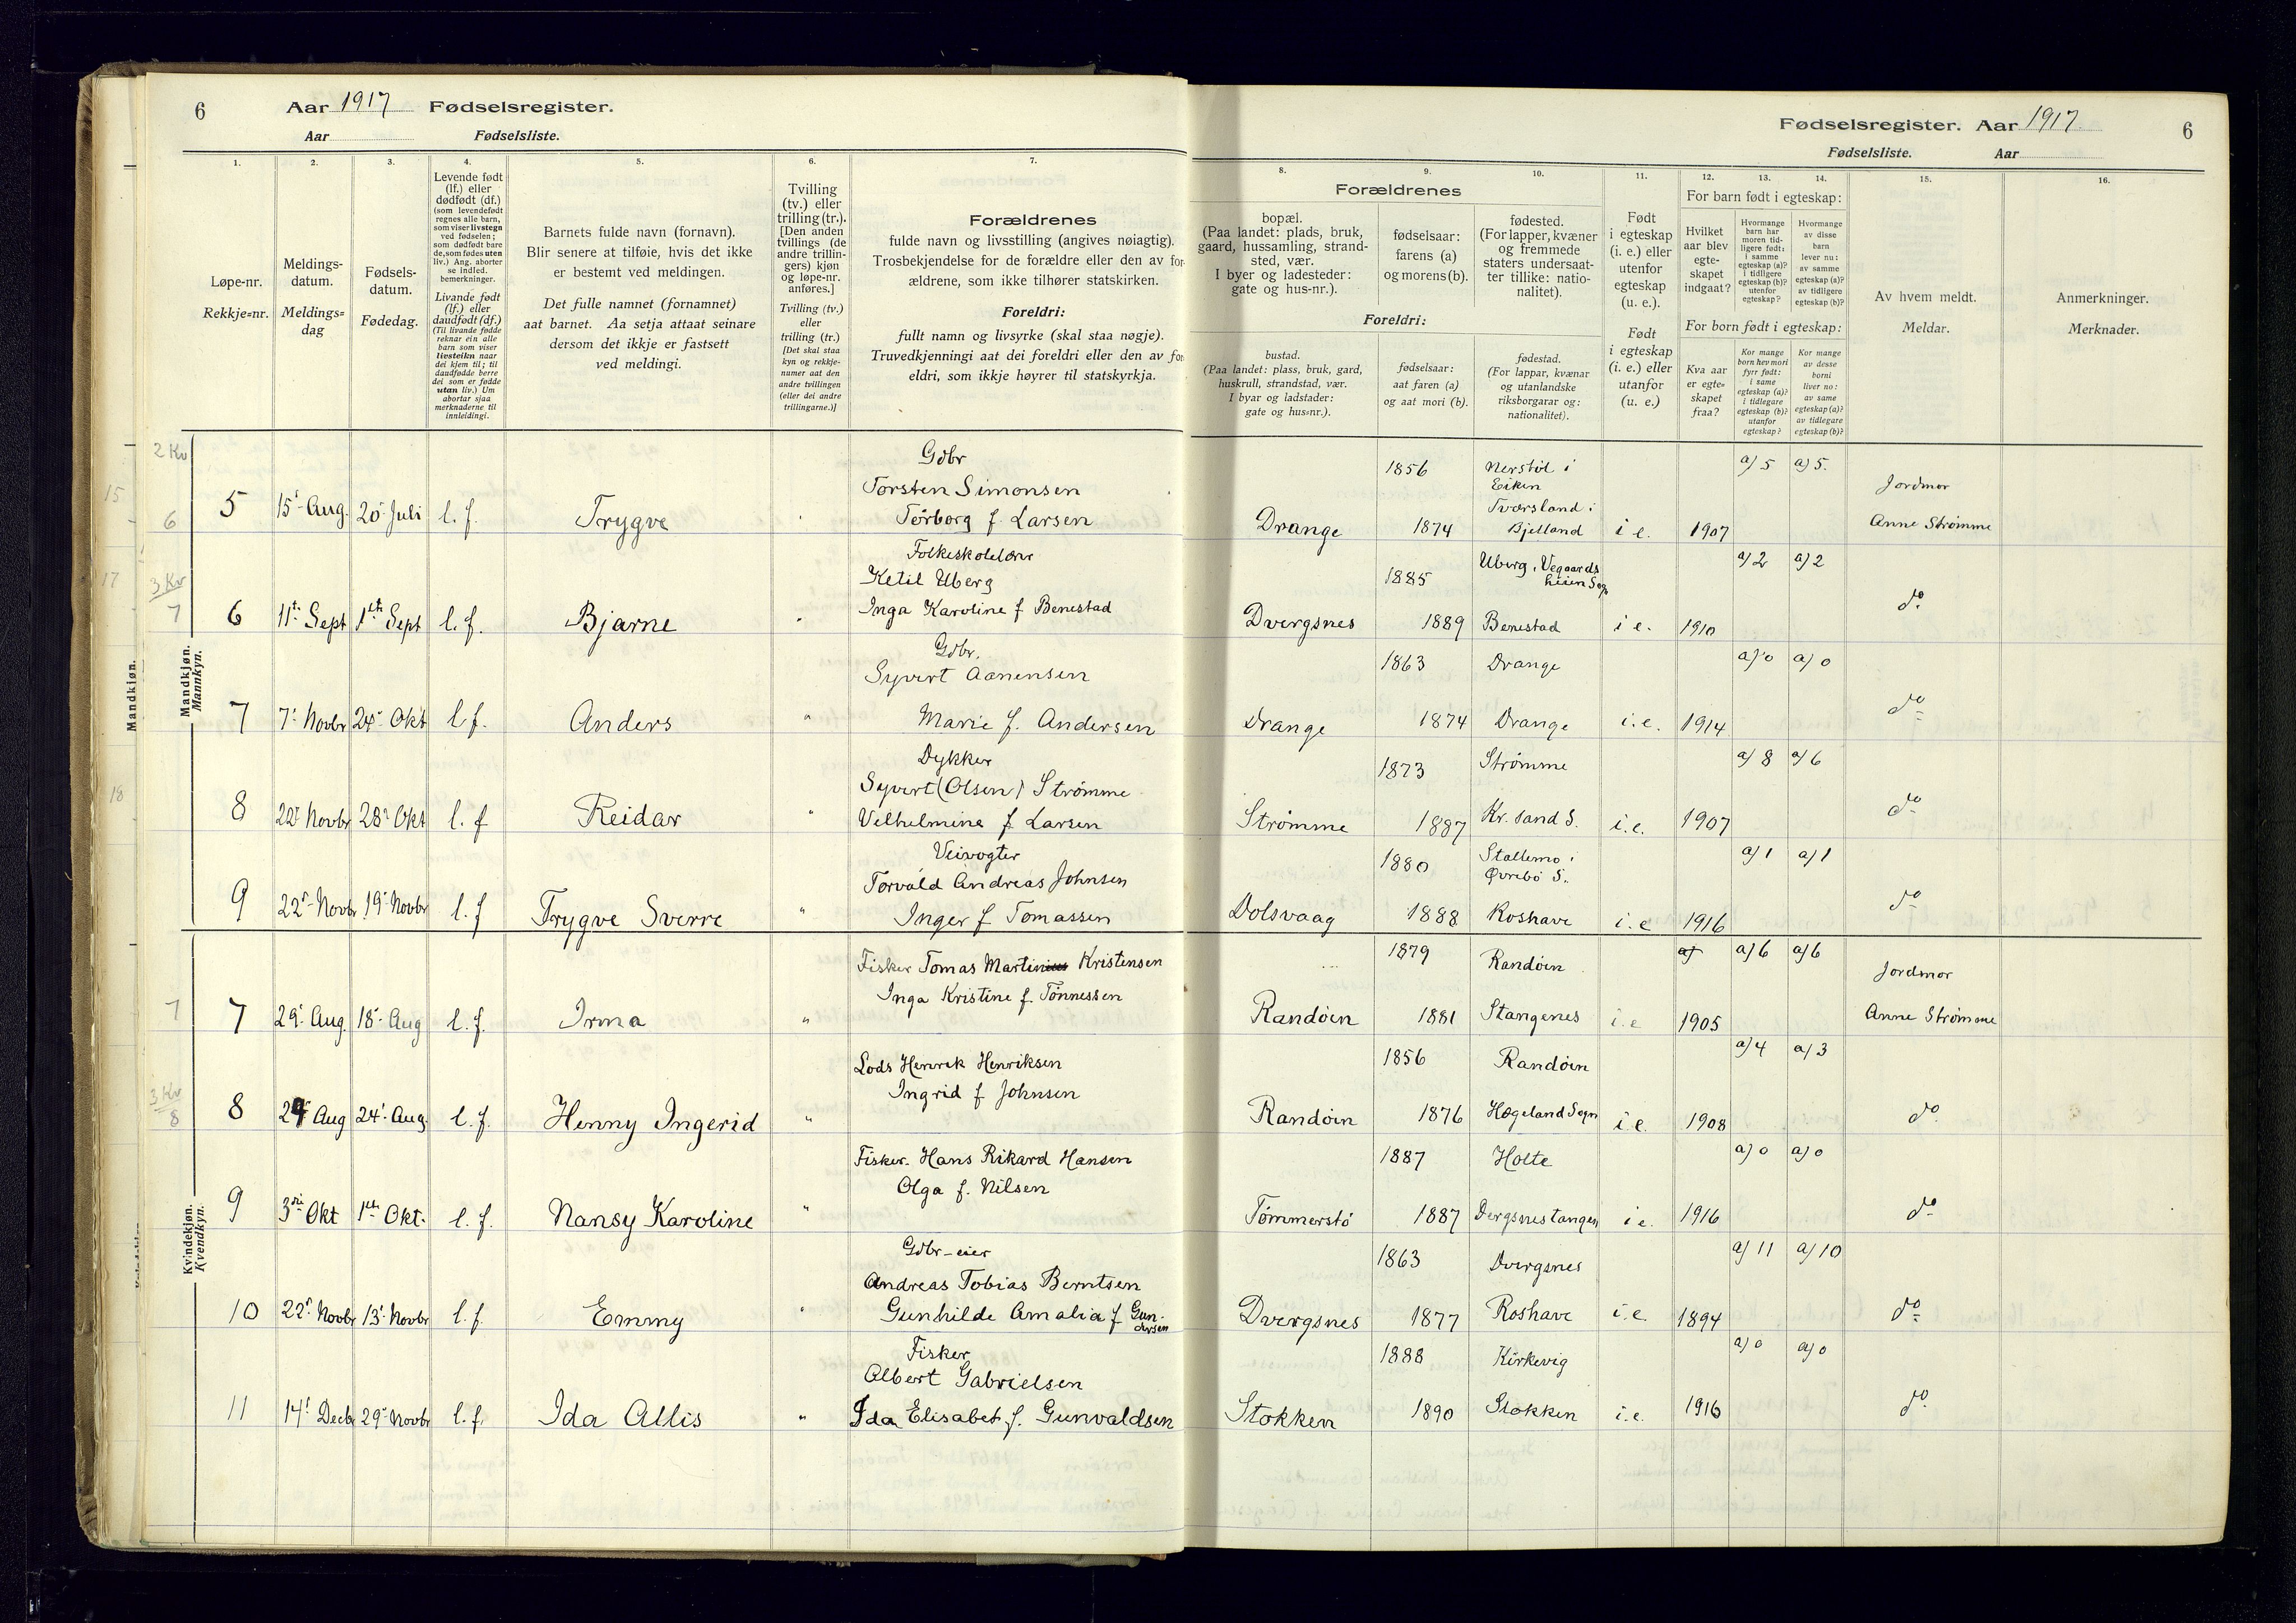 6 Aar 1917 Fødselsregister.
Aar Fødselsliste.
Fødselsregister. Aar 1917. 6
Fødselsliste. Aar
1. 2. 3. 4. 5. 6. 7.
8. 9. 10. 11. 12. 13. 14. 15. 16.
Løpe-nr.
Rekkje=nr.
Meldings-
datum.
Meldings=
dag
Fødsels-
datum.
Fødedag.
Levende født
(lf.) eller
dødfødt (df.)
(som levendefødt
regnes alle barn,
som viser livstegn
ved fødselen;
som dødfødt bare
de, som fødes uten
liv.) Ang. aborter
se indled.
bemerkninger.
Livande født
(lf.) eller
daudfødt (df.)
(Til livande fødde
reknar ein alle
barn som viser
livsteikn naar
dei kjem til; til
daudfødde berre
dei som er fødde
utan liv.) Um
abortar sjaa
merknaderne til
innleidingi.
Barnets fulde navn (fornavn).
Blir senere at tilføie, hvis det ikke
er bestemt ved meldingen.
Det fulle namnet (fornamnet)
aat barnet. Aa setja attaat seinare
dersom det ikkje er fastsett
ved meldingi.
Tvilling
(tv.) eller
trilling (tr.).
[Den anden
tvillings (de
andre trillin-
gers) kjøn
og løpe-nr.
anføres.]
Tvilling (tv.)
eller
trilling (tr.)
[Det skal staa
kyn og rekkje-
numer aat den
andre tvillingen
(eller dei andre
trillingarne.)]
Forældrenes
fulde navn og livsstilling (angives nøiagtig).
Trosbekjendelse for de forældre eller den av for-
ældrene, som ikke tilhører statskirken.
Foreldri:
fullt namn og livsyrke (skal staa nøgje).
Truvedkjenningi aat dei foreldri eller den av for-
eldri, som ikkje høyrer til statskyrkja.
Forældrenes
bopæl.
(Paa landet: plads, bruk,
gaard, hussamling, strand-
sted, vær.
I byer og ladesteder:
gate og hus-nr.).
fødselsaar:
farens (a)
og morens (b).
fødested.
(For lapper, kvæner
og fremmede
staters undersaat-
ter tillike: natio-
nalitet).
Foreldri:
bustad.
(Paa landet: plass, bruk, gard,
huskrull, strandstad, vær.
I byar og ladstader:
gate og hus=nr.).
fødselsaar:
aat faren (a)
og aat mori (b).
fødestad.
(For lappar, kvænar
og utanlandske
riksborgarar og:
nationalitet).
Født
i egteskap
(i. e.) eller
utenfor
egteskap
(u. e.).
Født
i egteskap
(i. e.) eller
utanfor
(u. e.)
For barn født i egteskap:
Hvilket
aar blev
egte-
skapet
indgaat?
Hvormange
barn har
moren tid-
ligere født:
i samme
egteskap (a)?
i tidligere
egteskap (b)?
utenfor
egteskap?
Hvormange
av disse
barn
lever nu:
av samme
egteskap (a)?
av tidligere
egteskap (b)?
For born født i egteskap:
Kva aar
er egte=
skapet
fraa?
Kor mange
born hev mori
fyrr født:
i same
egteskap (a)?
i tidlegare
egteskap (b)?
utanfor
egteskap?
Kor mange
av desse
borni
liver no:
av same
egteskap (a)?
av tidlegare
egteskap (b)?
Av hvem meldt.
Meldar.
Anmerkninger.
Merknader.
Mandkjøn.
Mandkjøn.
Mannkyn.
2 Kv
15
6
Gdbr
Torsten Simonsen 1856 Nerstøl i Eiken a) 5 a) 5. Jordmor
5 15' Aug. 20' Juli l. f. Trygve Tørborg f. Larsen Drange 1874 Tvorsland i Bjelland i e. 1907 Anne Strømme
17
3 Kv
7
Folkeskolelærer
Ketil Uberg 1885 Uberg, Vegaards heien Sogn a) 2 a) 2
6 11te Sept 1ste Sept l. f. Bjarne Inga Karoline f Benestad Dvergsnes 1889 Benestad i e. 1910 do
Gdbr.
Syvert Aanensen 1863 Drange a) 0 a) 0
7 7' Novbr 24' Okt l f. Anders " Marie f. Andersen Drange 1874 Drange i. e. 1914 do
18
Dykker
Syvert (Olsen) Strømme 1873 Strømme a) 8 a) 6
8 22' Novbr 28' Okt l. f Reidar " Vilhelmine f Larsen Strømme 1887 Kr. sand S. i. e. 1907 do
Veivogter
Torvald Andreas Johnsen 1880 Stallemo i Øvrebø S. a) 1 a) 1
9 22' Novbr 19' Novbr l. f Trygve Sverre " Inger f Tomassen Dolsvaag 1888 Roshave i. e 1916 do
Kvindekjøn.
Kvendkyn.
Fisker Tomas Martinius Kristensen 1879 Randøen a) a) 6 a) 6 Jordmor
7 7 29' Aug. 18' Aug l. f. Irma " Inga Kristine f. Tønnessen Randøen 1881 Stangenes i. e 1905 Anne Strømme
3 Kv
8
Lods Henrik Henriksen 1856 Randøen a) 4 a) 3
8 29' Aug 24' Aug. l. f. Henny Ingerid " Ingrid f Johnsen Randøen 1876 Hægeland Sogn i e. 1908 do
Fisker. Hans Rikard Hansen 1887 Holte a) 0 a) 0
9 3die Okt 1ste Okt. l. f. Nansy Karoline " Olga f. Nilsen Tømmerstø 1887 Dvergsnestangen i e. 1916 do
Gdbr-eier
Andreas Tobias Berntsen 1863 Dvergsnes a) 11 a) 10
10 22' Novbr 13' Novbr l. f. Emmy " Gunhilde Amalia f Gun-dersen Dvergsnes 1877 Roshave i. e. 1894 do
Fisker
Albert Gabrielsen 1888 Kirkevig a) 0 a) 0
11 14' Decb 29' Novbr l. f. Ida Allis " Ida Elisabet f. Gunvaldsen Stokken 1890 Stokken i. e. 1916 do